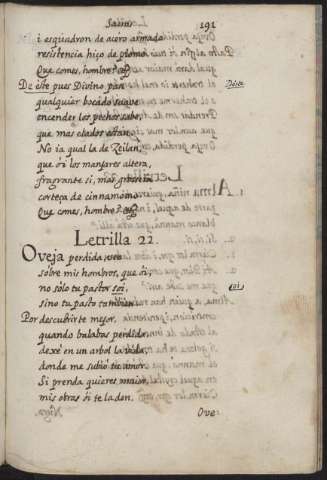 Sacras. 191
i esquadron de acero armado
resistencia hizo de plomo.
Que comes, hombre? &c.
De este pues Divino pan Dèste
qualquier bocado suave
encender los pechos sabe,
que mas elados estàn.
No ia qual la de Zeilan,
que òi los manjares altera,
fragrante si, mas grosera
corteça de cinnamomo.
Que comes, hombre? &c.
Letrilla 22.
Oveja perdida, ven
sobre mis hombros, que òi,
no sòlo tu pastor soi, soi,
sino tu pasto tambien.
Por descubrirte mejor,
quando balabas perdida,
dexè en un arbol la vida,
donde me subiò tu amor.
Si prenda quieres maior,
mis obras òi te la den.
Ove-